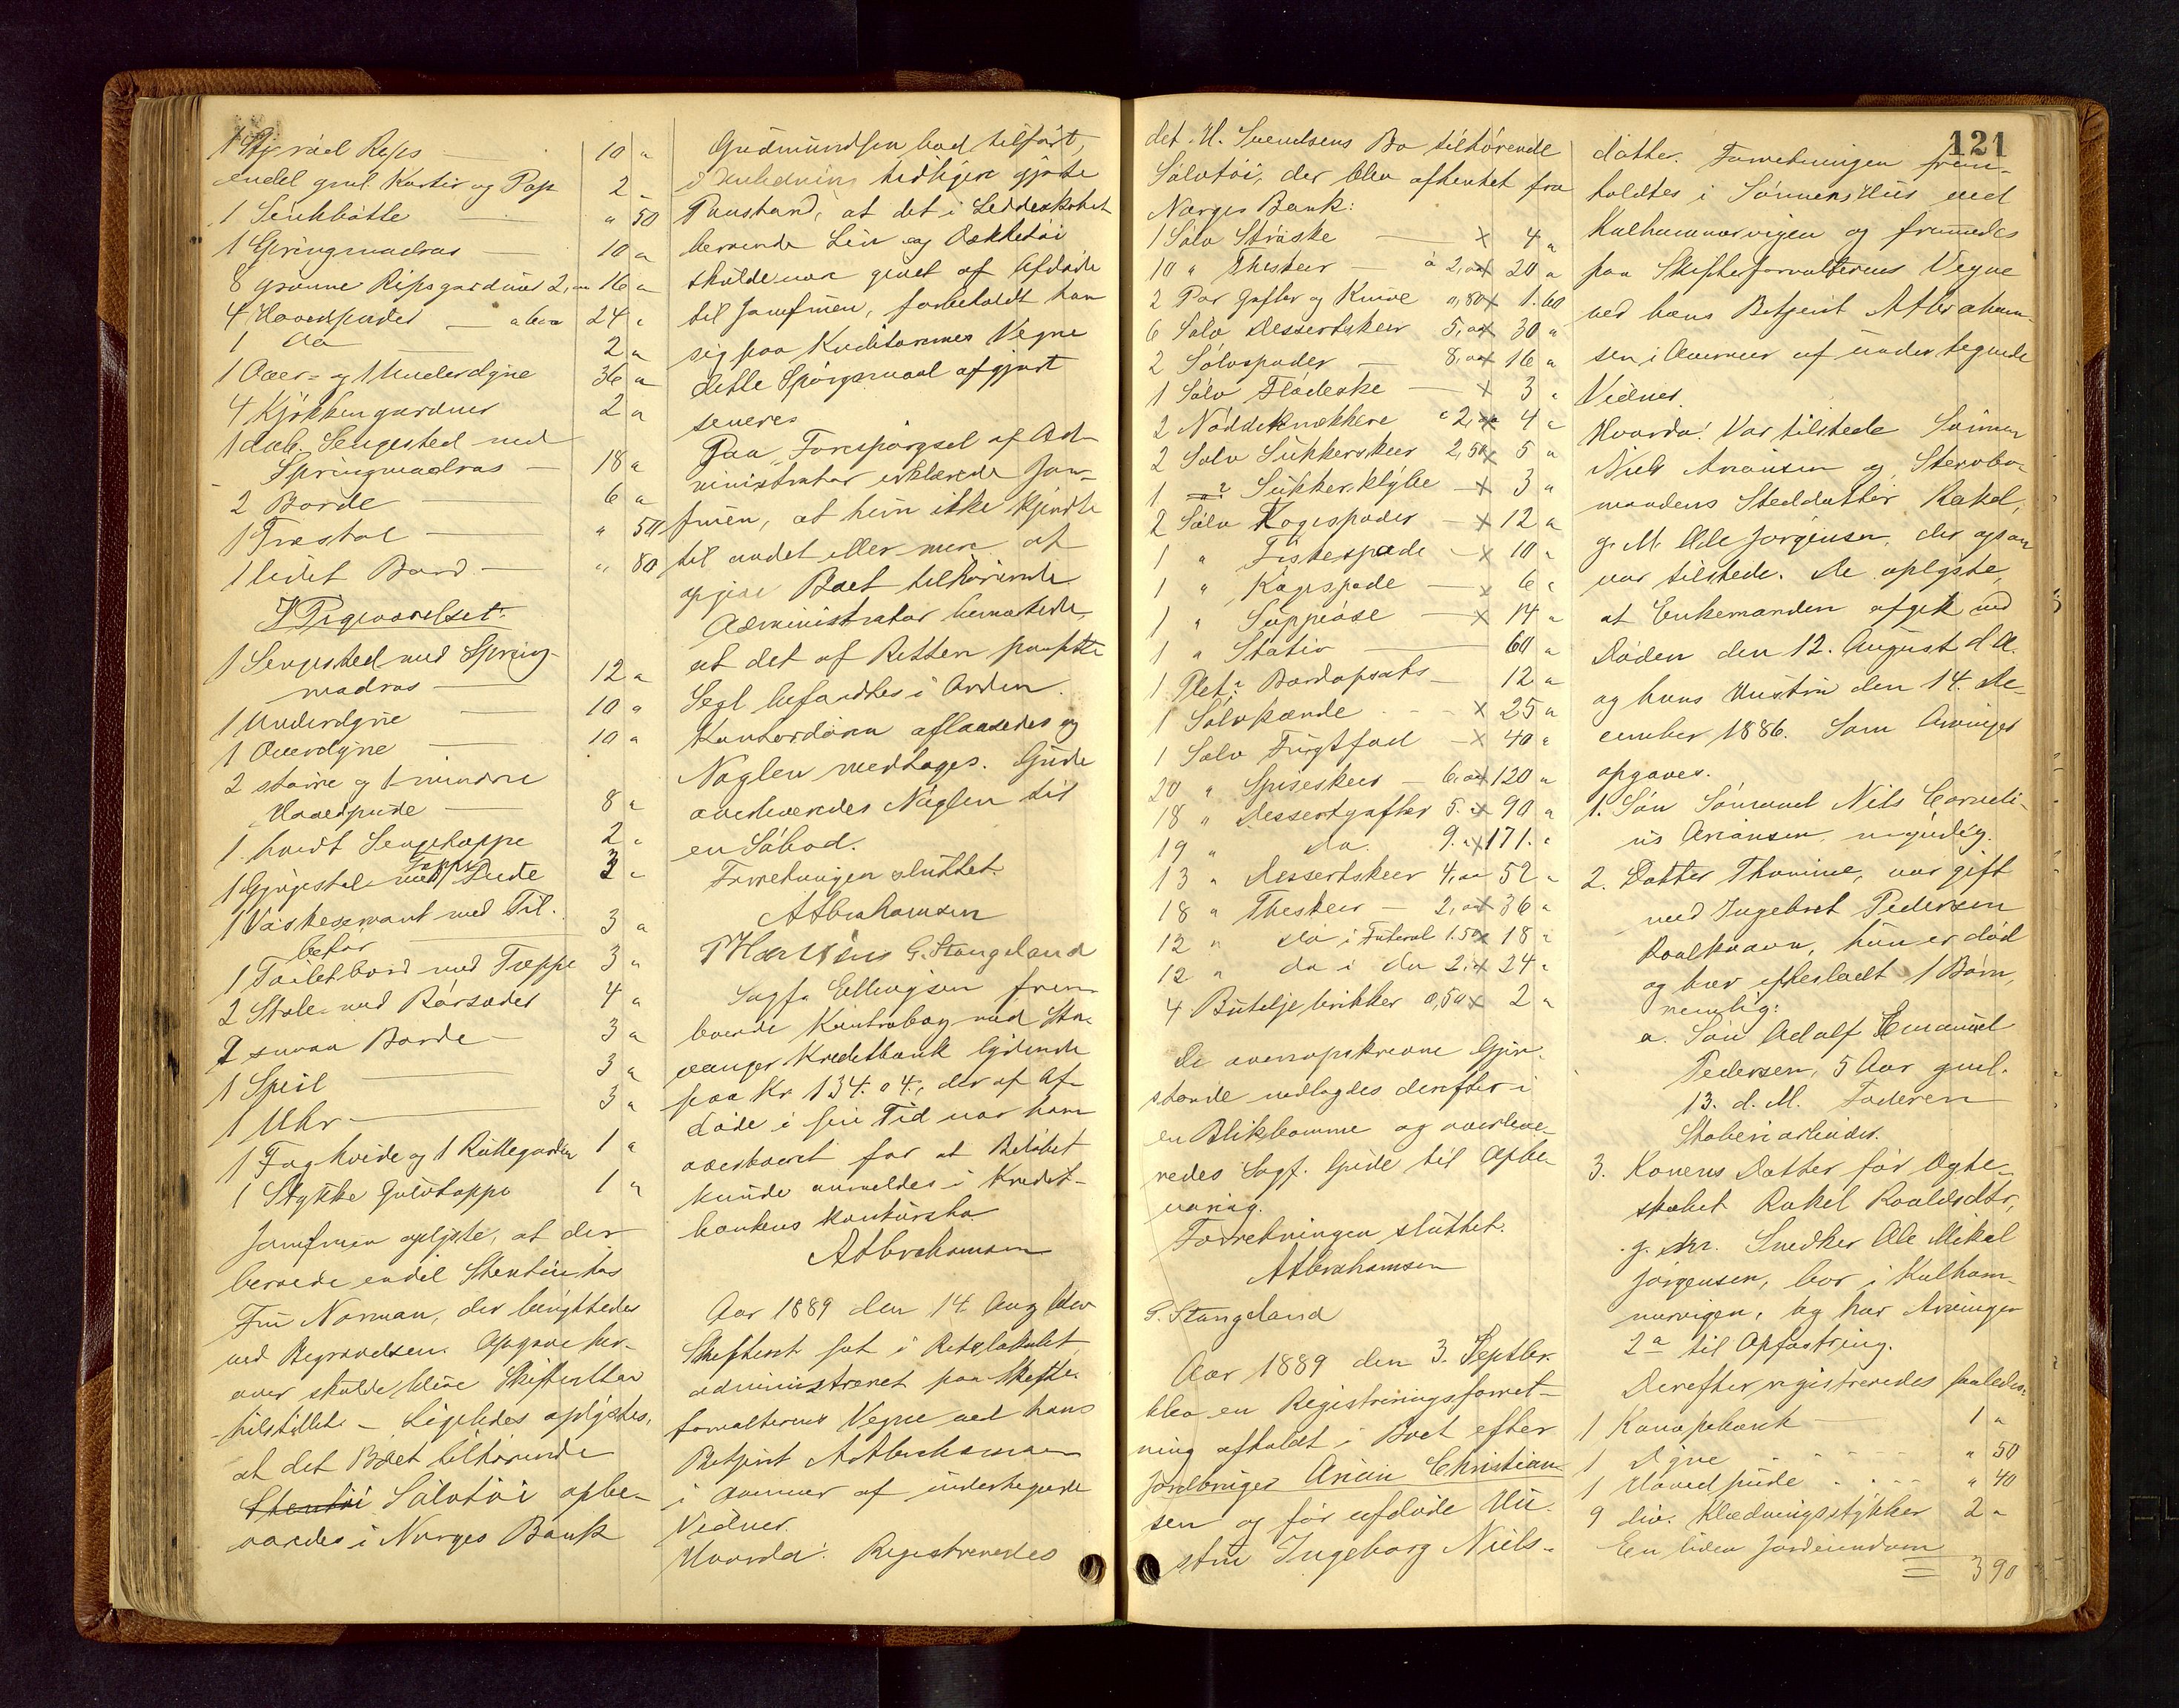 10 "
endel gml. Kartir og Pap 2 "
1 Senkbötte " 50
1 Springmadras 10 "
8 grønne Ripsgardiner 2, " 16 "
4 Hovedpuder a 6 " 24 "
1 do 2 "
1 Over- og 1 Underdyne 36 "
4 Kjøkkengardner 2 "
1 dob. Sengested med
Springmadras 18 "
2 Borde 6 "
1 Træstol " 50
1 lidet Bord " 80
I Pigeværelset:
1 Sengested med Spring-
madras 12 "
1 Underdyne 10 "
1 Overdyne 10 "
2 større og 1 mindre
Hovedpude 8 "
1 hvidt Sengetæppe 2 "
1 Gyngestol med Tæppe Pude 3 "
1 Vaskeservant med Til-
behør 3 "
1 Toiletbord med Tæppe 3 "
2 Stole med Rørsæder 4 "
2 smaa Borde 3 "
1 Speil 3 "
1 Uhr 3 "
1 Fag hvide og 1 Rullegardin 1 "
1 Stykke Gulvtæppe 1 "
Jomfruen oplyste, at der
beroede endel Stentøi hos
Fru Norman, der benyttedes
ved Begravelsen. Opgave her-
over skulde blive Skifteretten
tilstillet. – Ligeledes oplystes,
at det Boet tilhørende
Stentøi Sølvtøi opbe-
vardes i Norges Bank
Gudmundsen bad tilført,
i Anledning tidligere gjorte
Paastand, at det i Ledderskabet
beroende Lin og Dækketøi
skulde være givet af Afdøde
til Jomfruen, forbeholdt han
sig paa Kreditorernes Vegne
dette Spørgsmaal afgjort
senere.
Paa Forespørgsel af Ad-
ministrator erklærede Jom-
fruen, at hun ikke kjendte
til andet eller mere at
opgive Boet tilhørende
Administrator bemærkede,
at det af Retten paasatte
Segl befandtes i Orden.
Kontordøren aflaasedes og
Nøglen medtoges. Gude
overleveredes Nøglen til
en Søbod.
Forretningen sluttet.
A Abrahamsen
G. Stangeland
Sagf. Ellingsen frem-
bærede Kontrabog med Sta-
vanger Kreditbank lydende
paa Kr 134.04, der af Af-
døde i sin Tid var ham
overbæret for at Beløbet
kunde anmeldes i Kredit-
bankens Konkursbo.
A Abrahamsen
Aar 1889 den 14. Aug blev
Skifteret sat i Retslokalet
administreret paa Skifte-
forvalterens Vegne ved hans
Betjent A Abrahamsen
i Overvær af undertegnede
Vidner.
Hvorda: Registreredes
121
det H. Svendsens Bo tilhørende
Sølvtøi, der blev afhentet fra
Norges Bank:
1 Sølv Strøske x 4 "
10 " Theskeer à 2, " x 20 "
2 Par Gafler og Knive 0,80 x 1.60
6 Sølv Dessertskeer 5, " x 30 "
2 Sølvspader 8, " x 16 "
1 Sølv Flødeske x 3 "
2 Nøddeknækkere à 2, " x 4 "
2 Sølv Sukkerskeer 2,50 x 5 "
1 " Sukkerklype x 3 "
2 Sølv Kagespader x 12 "
1 " Fiskespade x 10 "
1 " Kagespade x 6 "
1 " Suppeøse x 14 "
1 " Stativ 60 "
1 Plet Bordopsats 12 "
1 Sølvkande x 25 "
1 Sølv Frugtfad x 40 "
20 " Spiseskeer 6, " x 120 "
18 " Dessertgafler 5. " x 90 "
19 " do. 9. " x 171. "
13 " Dessertskeer 4, " 52 "
18 " Theskeer 2, " x 36 "
12 " do i Futeral 1.50 x 18 "
12 " do i do 2. " x 24 "
4 Buteljebrikker 0,50 x 2 "
De ovenopskrevne Gjen-
stande nedlagdes derefter i
en Blikkomme og overleve-
redes Sagf. Gude til Opbe-
varing.
Forretningen sluttet.
A Abrahamsen
G. Stangeland
Aar 1889 den 3. Septbr.
blev en Registreringsforret-
ning afholdt i Boet efter
Jordbruger Arian Christian-
sen og før afdøde Hu-
stru Ingeborg Niels-
datter. Forretningen frem-
holdtes i Sønnens Hus ved
Kalhammervigen og fremmedes
paa Skifteforvalterens Vegne
ved hans Betjent A Abraham-
sen i Overvær af undertegnede
Vidner.
Hvorda: Var tilstede Sønnen
Niels Ariansen og Stervbo-
mandens Steddatter Rakel,
g. M. Ole Jørgensen, der ogsaa
var tilstede. De oplyste,
at Enkemanden afgik ved
Døden den 12. August d. A.
og hans Hustru den 14. De-
cember 1886. Som Arvinger
opgaves.
1. Søn Sømand Nils Corneli-
us Ariansen, myndig.
2. Datter Thomine, var gift
med Ingebret Pedersen
Roalkvam, hun er død
og har efterladt 1 Barn,
nemlig:
a. Søn Adolf Emanuel
Pedersen, 5 Aar gml.
13. d. M. Faderen
Støberiarbeider.
3. Konens Datter før Ægte-
skabet Rakel Roaldsdtr,
g. m. Snedker Ole Mikal
Jørgensen, bor i Kalham-
mervigen, og har Arvingen
2a til Opfostring.
Derefter registreredes saaledes:
1 Kanapebænk 1 "
1 Dyne " 50
1 Hovedpude " 40
9 div. Klædningsstykker 2 "
En liden Jordeiendom
3 90